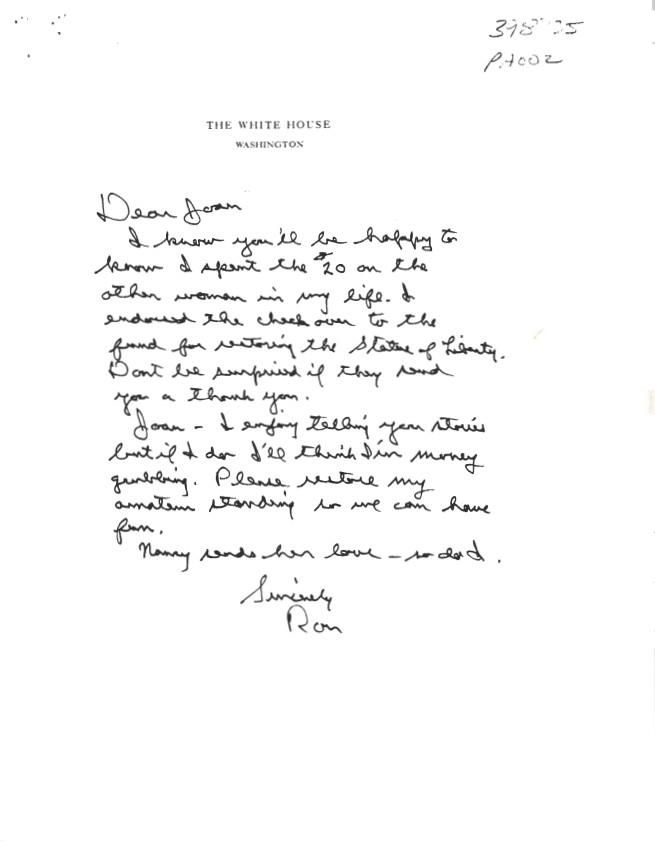 P.4002
THE WHITE HOUSE
WASHINGTON
Dear Joan
I know you'll be happy to
know I spent the $20 on the
other woman in my life. I
endorsed the check over to the
fund for restoring the Statue of Liberty.
Don't be surprised if they send
you a thank you.
Joan – I enjoy telling you stories
but if I do I'll think I'm money
grubbing. Please restore my
amateur standing so we can have
fun.
Nancy sends her love – so do I.
Sincerely
Ron